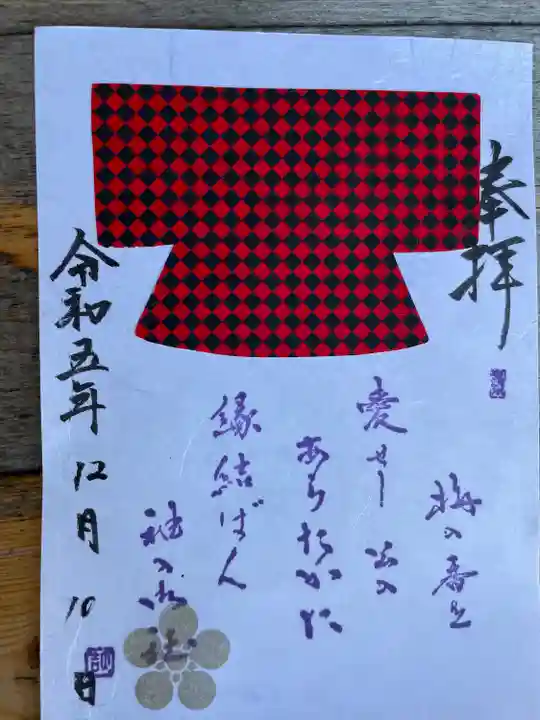 奉拝
梅の香を
愛せし公の
あらたかに
縁結ばん
袖の水
令和五年12月10日